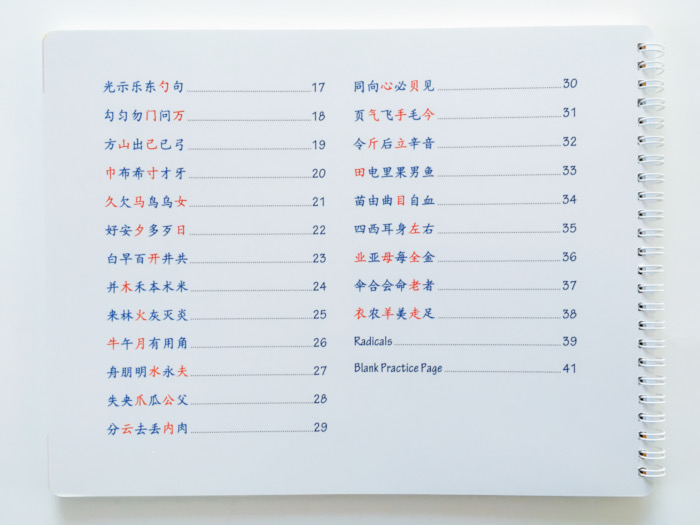 光示乐东勺句 17
勾匀勿门问万 18
方山出己已弓 19
巾布希寸才牙 20
久欠马鸟乌女 21
好安夕多歹日 22
白早百开井共 23
并木禾本术米 24
来林火灰灭炎 25
牛午月有用角 26
舟朋明水永夫 27
失央爪瓜公父 28
分云去丢内肉 29
同向心必贝见 30
页气飞手毛今 31
令斤后立辛音 32
田电里果男鱼 33
苗由曲目自血 34
四西耳身左右 35
业亚母每全金 36
伞合会命老者 37
衣农羊美走足 38
Radicals 39
Blank Practice Page 41